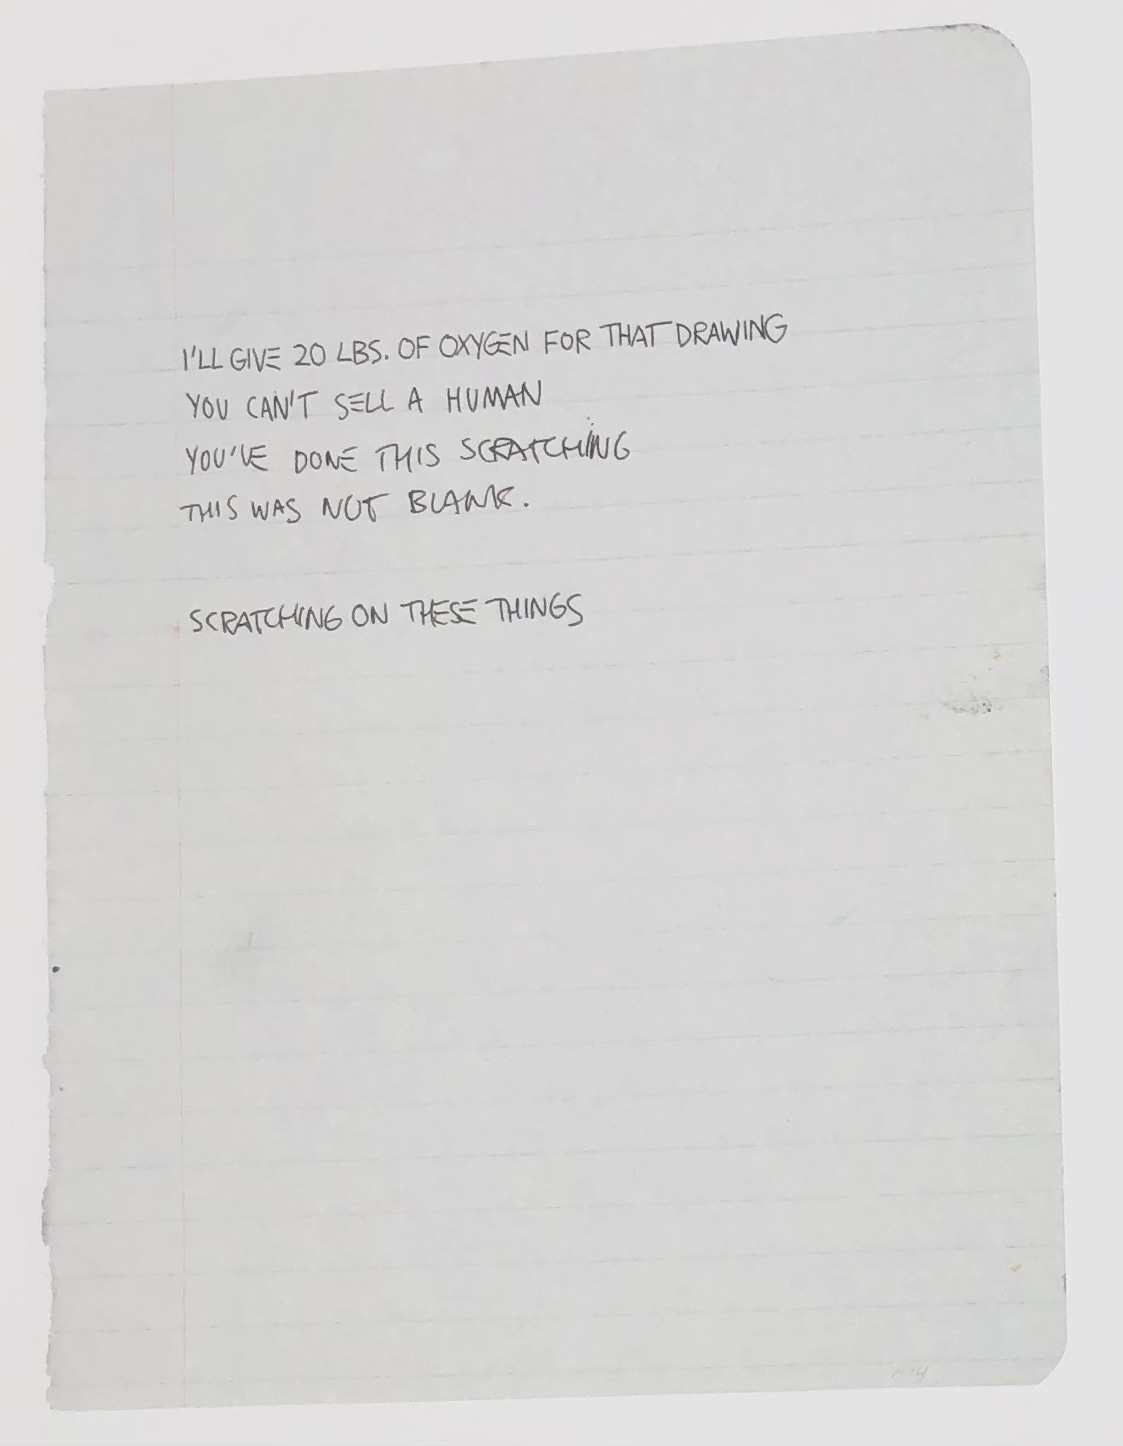 I'LL GIVE 20 LBS. OF OXYGEN FOR THAT DRAWING
YOU CAN'T SELL A HUMAN
YOU'VE DONE THIS SCRATCHING
THIS WAS NOT BLANK.
SCRATCHING ON THESE THINGS